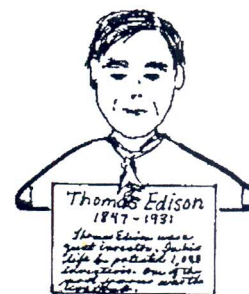 Thomas Edison
1847 - 1931
Thomas Edison was a
great inventor. In his
life he patented 1,098
inventions. One of the
most famous was the